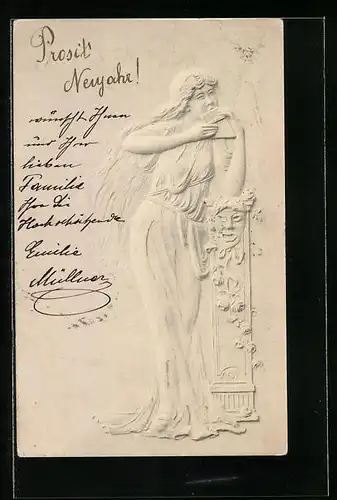 Prosit
Neujahr!
wünscht Ihnen
und Ihrer
lieben
Familie
Ihre Sie
Hochschätzende
Emilie
Müllner